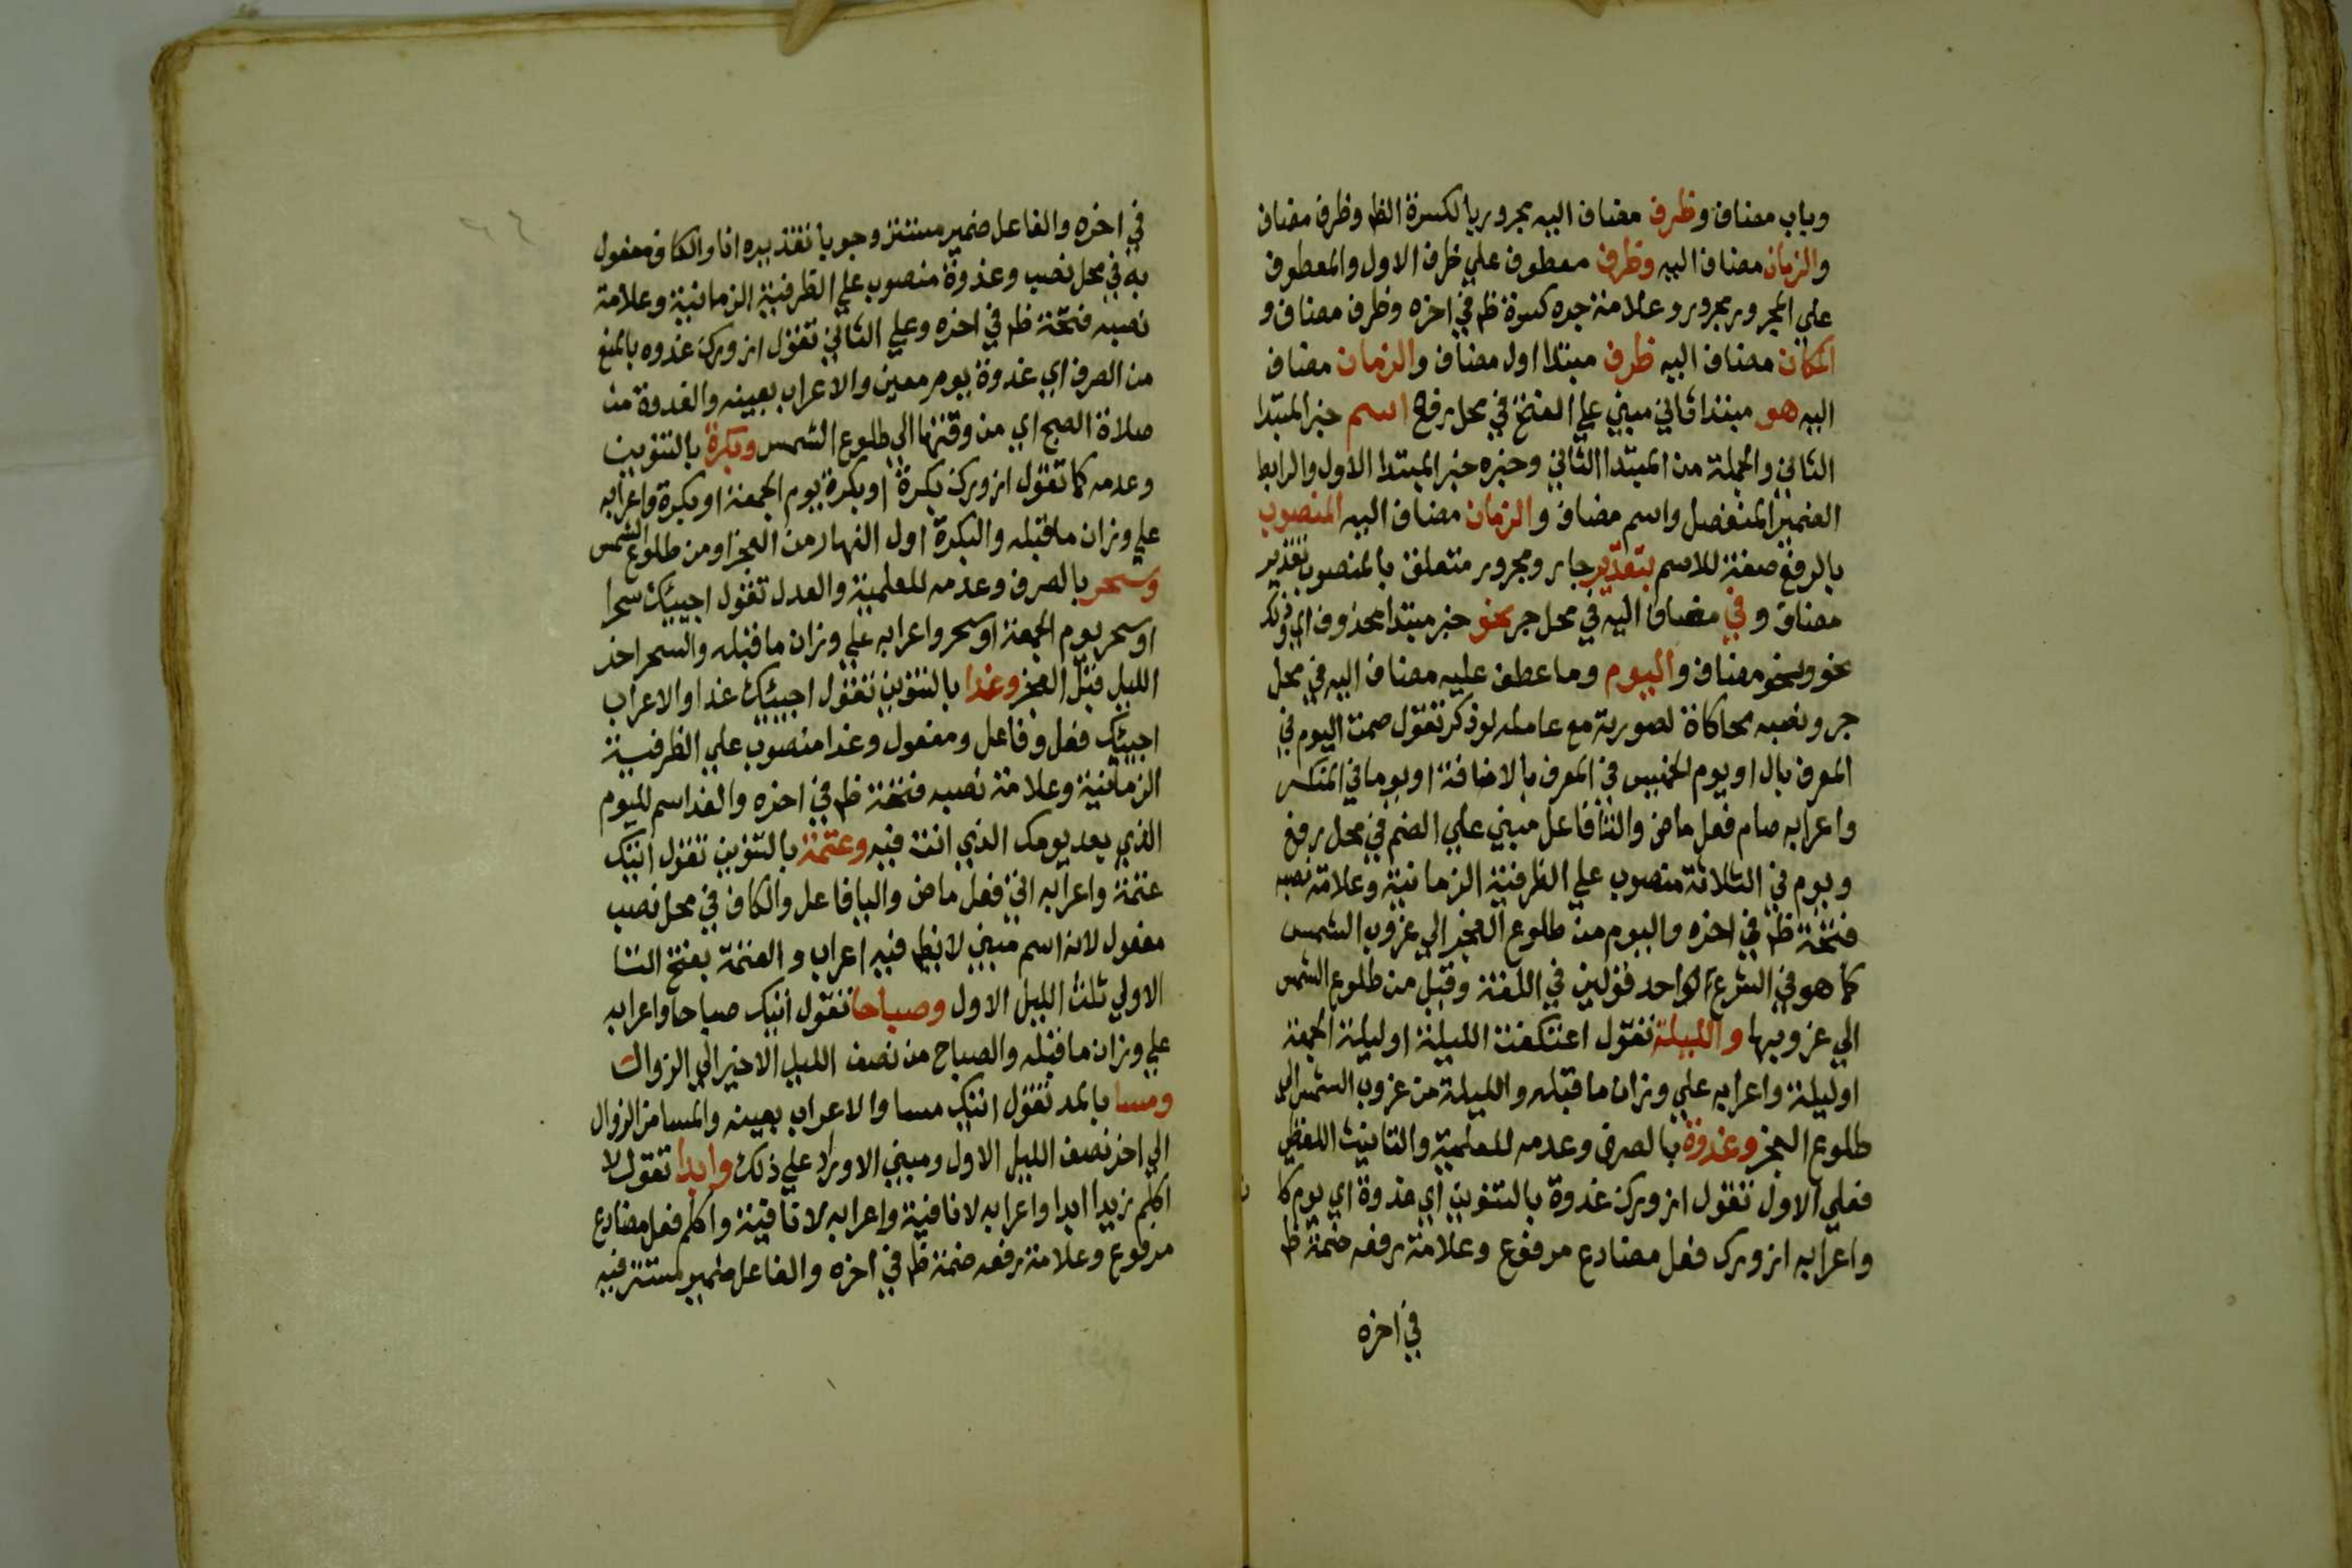 وباب مضاف وظرف مضاف اليه مجرور بالكسرة الظ وظرف مضاف
والزمان مضاف اليه وظرف معطوف علي ظرف الاول والمعطوف
علي المجرور مجرور وعلامة جره كسرة ظ في اخره وظرف مضاف و
المكان مضاف اليه ظرف مبتدا اول مضاف والزمان مضاف
اليه هو مبتدا ثاني مبني علي الفتح في محل رفع اسم خبر المبتدا
الثاني والجملة من المبتدا الثاني وخبره خبر المبتدا الاول والرابط
الضمير المنفصل واسم مضاف والزمان مضاف اليه المنصوب
بالرفع صفة للاسم بتقدير جار ومجرور متعلق بالمنصوب تقدير
مضاف وفي مضاف اليه في محل جر نحو خبر مبتدا محذوف اي وذلك
نحو ونحو مضاف واليوم وما عطف عليه مضاف اليه في محل
جر ونصبه محاكاة لصورته مع عامله لو ذكر تقول صمت اليوم في
المعرف بال او يوم الخميس في المعرف بالاضافة او يوما في المنكر
واعرابه صام فعل ماض والتا فاعل مبني علي الضم في محل رفع
ويوم في الثلاثة منصوب علي الظرفية الزمانية وعلامة نصبه
فتحة ظ في اخره واليوم من طلوع الفجر الي غروب الشمس
كما هو في الشرع لواحد قولين في اللغة وقيل من طلوع الشمس
الي غروبها والليلة تقول اعتكفت الليلة او ليلة الجمعة
او ليلة واعرابه علي وزان ما قبله والليلة من غروب الشمس الي
طلوع الفجر وغدوة بالصرف وعدمه للعلمية والتانيث اللفظي
فعلي الاول تقول ازورك غدوة بالتنوين اي غدوة اي يوم كا
واعرابه ازورك فعل مضارع مرفوع وعلامة رفعه ضمة ظ
في اخره
في اخره والفاعل ضمير مستتر وجوبا تقديره انا والكاف مفعول
به في محل نصب وغدوة منصوب علي الظرفية الزمانية وعلامة
نصبه فتحة ظ في اخره وعلي الثاني تقول ازورك غدوه بالمنع
من الصرف اي غدوة يوم معين والاعراب بعينه والغدوة من
صلاة الصبح اي من وقتها الي طلوع الشمس وبكرة بالتنوين
وعدمه كما تقول ازورك بكرة او بكرة يوم الجمعة او بكرة واعرابه
علي وزان ما قبله والبكرة اول النهار من الفجر او من طلوع الشمس
وسحر بالصرف وعدمه للعلمية والعدل تقول اجيئك سحرا
او سحر يوم الجمعة او سحر واعرابه علي وزان ما قبله والسحر اخر
الليل قبل الفجر وغدا بالتنوين تقول اجيئك غدا والاعراب
اجيئك فعل وفاعل ومفعول وغدا منصوب علي الظرفية
الزمانية وعلامة نصبه فتحة ظ في اخره والغد اسم لليوم
الذي بعد يومك الذي انت فيه وعتمة بالتنوين تقول اتيتك
عتمة واعرابه اتي فعل ماض والتا فاعل والكاف في محل نصب
مفعول لانه اسم مبني لا يظ فيه اعراب والعتمة بفتح التا
الاولي ثلث الليل الاول وصباحا تقول اتيتك صباحا واعرابه
علي وزان ما قبله والصباح من نصف الليل الاخير الي الزوال
ومسا بالمد تقول اتيتك مسا والاعراب بعينه والمسا من الزوال
الي اخر نصف الليل الاول ومبني الاوراد علي ذلك وابدا تقول لا
اكلم زيدا ابدا واعرابه لا نافية واعرابه لا نافية واكلم فعل مضارع
مرفوع وعلامة رفعه ضمة ظ في اخره والفاعل ضمير مستتر فيه